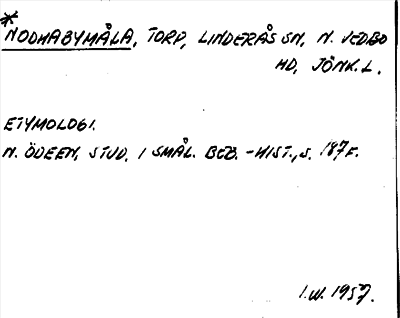 *
NODHABYMÅLA, TORP, LINDERÅS SN, N. VEDBO
HD, JÖNK. L.
ETYMOLOGI.
N. ÖDEEN, STUD. I SMÅL. BEB.-HIST., S. 187 F.
I.W. 1957.